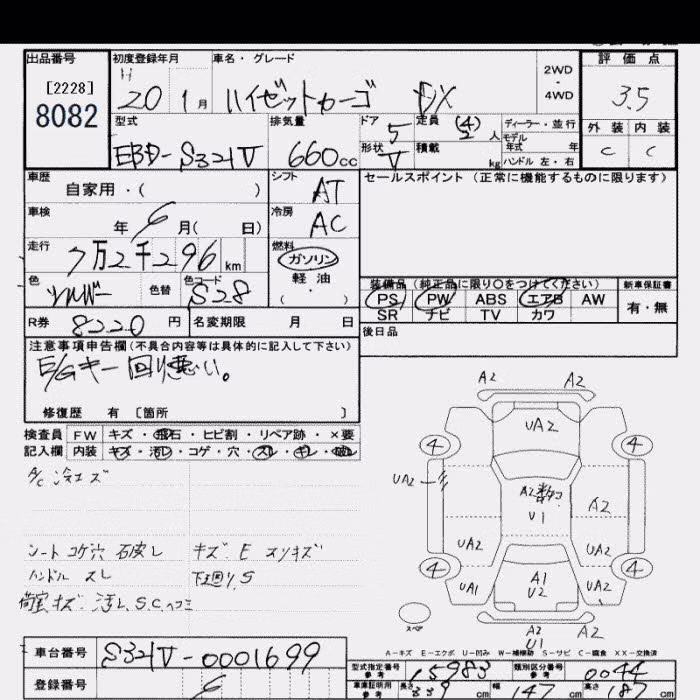 出品番号 初度登録年月 車名・グレード 2WD・4WD 評価点
[2228]
8082
H 20 1月 ハイゼットカーゴ DX 3.5
型式 排気量 ドア 5 定員 (4) 2 人 ディーラー・並行 外装 内装
EBD-S321V 660cc 形状 V 積載 kg モデル年式 年 C C
ハンドル 左・右
車歴 シフト セールスポイント (正常に機能するものに限ります)
自家用・( ) AT
車検 冷房
年 6 月( 日) AC
走行 燃料
7万2千296 km ガソリン
軽油
色 色替 色コード ( ・ ) 装備品 (純正品に限り○をつけてください) 新車保証書
シルバー S28 PS PW ABS エアB AW 有・無
SR ナビ TV カワ
R券 8220 円 名変期限 月 日 後日品
注意事項申告欄(不具合内容等は具体的に記入して下さい)
E/Gキー回り悪い。
修復歴 有 〔箇所 〕
検査員 FW キズ・飛石・ヒビ割・リペア跡・×要
記入欄 内装 キズ・汚レ・コゲ・穴・スレ・キレ・破レ
A/C 冷エズ
シート コゲ穴 破レ キズ E スリキズ
ハンドル スレ 下廻り.S
荷室 キズ.汚レ.S.C.ヘコミ
A2 A2
UA2
4 4
UA2 A2 U1 A2
UA2 UA2
4 4
UA1 A1 U2 UA2
スペア A2 U1 A2
A-キズ E-エクボ U-凹み W-補修跡 S-サビ C-腐食 XX-交換済
車台番号 S321V-0001699 型式指定番号 参考 15983 類別区分番号 参考 0044
登録番号 6 車庫証明用 参考 長さ 339 cm 幅 147 cm 高さ 187 cm